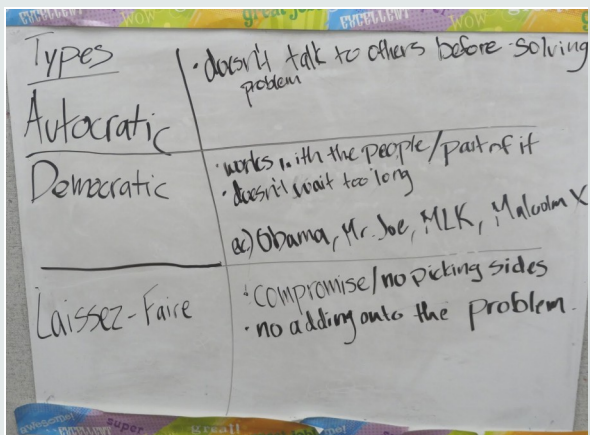 EXCELLENT WOW great job EXCELLENT WOW
Types
• doesn't talk to others before solving
problem
Autocratic
Democratic
• works with the people/part of it
• doesn't wait too long
ex) Obama, Mr. Joe, MLK, Malcolm X
Laissez-Faire
• compromise/no picking sides
• no adding onto the problem.
awesome! EXCELLENT super great!